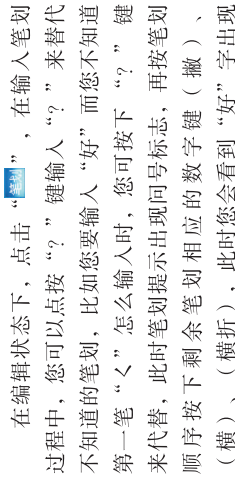 在编辑状态下，点击“笔划”，在输入笔划
过程中，您可以点按“?”键输入“?”来替代
不知道的笔划，比如您要输入“好”而您不知道
第一笔“ㄑ”怎么输入时，您可按下“?”键
来代替，此时笔划提示出现问号标志，再按笔划
顺序按下剩余笔划相应的数字键（撇）、
（横）、（横折），此时您会看到“好”字出现